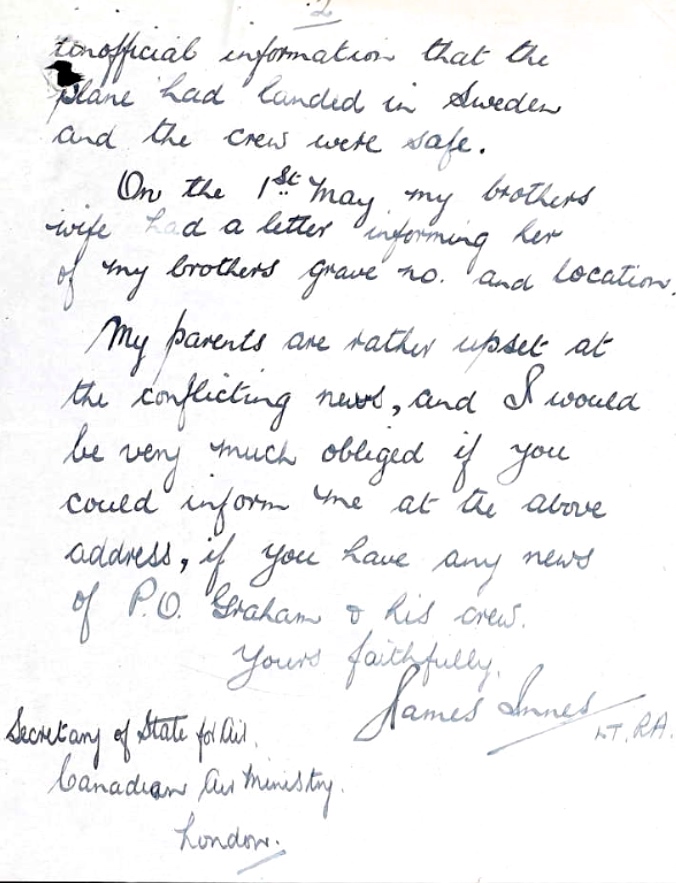 2
unofficial information that the
plane had landed in Sweden
and the crew were safe.
On the 1st May my brothers
wife had a letter informing her
of my brothers grave no. and location.
My parents are rather upset at
the conflicting news, and I would
be very much obliged if you
could inform me at the above
address, if you have any news
of P.O. Graham & his crew.
Yours faithfully,
James Innes
LT. RA.
Secretary of State for Air.
Canadian Air Ministry.
London.